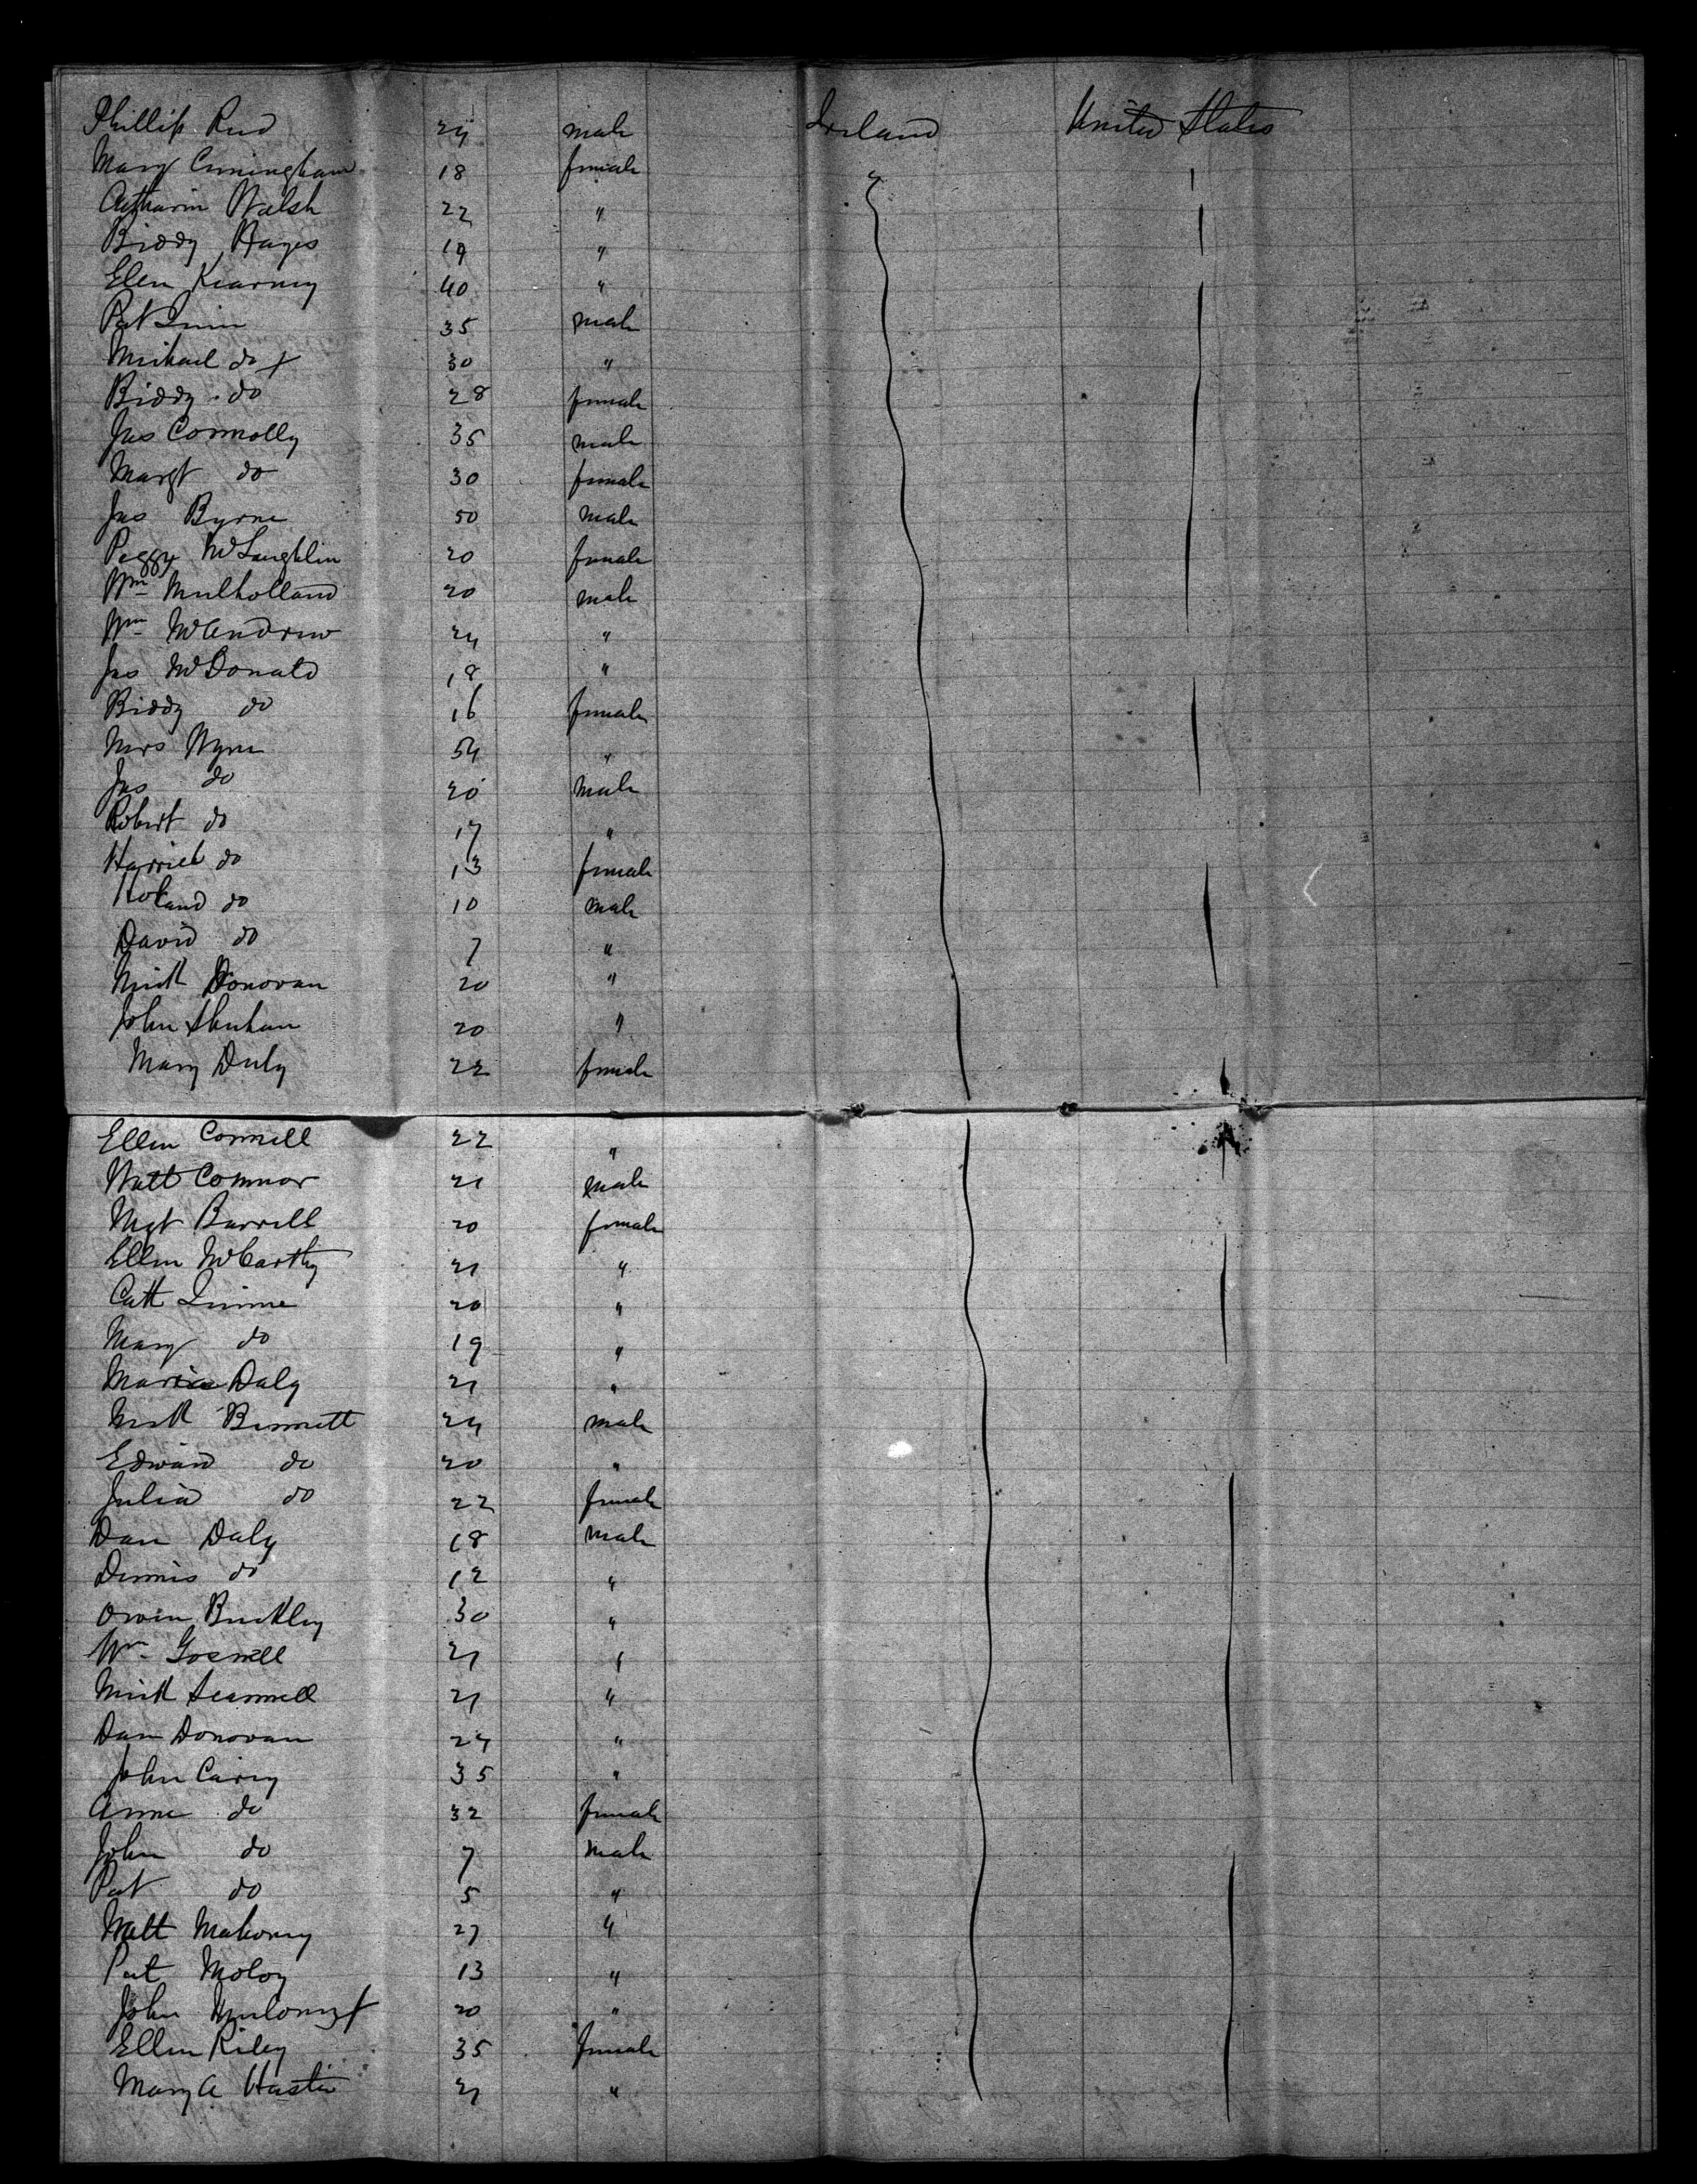 Phillip Reid 24 male Ireland United States
Mary Cuningham 18 female
Catharin Walsh 22 "
Biddy Hayes 19 "
Ellen Kearney 40 "
Pat Quin 35 male
Michael do + 30 "
Biddy do 28 female
Jas Connolly 35 male
Margt do 30 female
Jas Byrne 50 male
Peggy McLaughlin 20 female
Wm Mulholland 20 male
Wm McAndrew 24 "
Jas McDonald 18 "
Biddy do 16 female
Mrs Wynn 54 "
Jas do 20 male
Robert do 17 "
Harriet do 13 female
Roland do 10 male
David do 7 "
Mick Donovan 20 "
John Shehan 20 "
Mary Duly 22 female
Ellen Connell 22 "
Matt Connor 21 male
Mgt Barrett 20 female
Ellen McCarthy 21 "
Cath Quinne 20 "
Mary do 19 "
Maria Daly 21 "
Mick Bennett 24 male
Edward do 20 "
Julia do 22 female
Dan Daly 18 male
Dennis do 12 "
Owen Buckley 30 "
Wm Gosnell 21 "
Mick Scannell 21 "
Dan Donovan 24 "
John Carey 35 "
Anne do 32 female
John do 7 male
Pat do 5 "
Matt Mahoney 27 "
Pat Moloy 13 "
John 20 "
Ellen Riley 35 female
Mary A 21 "